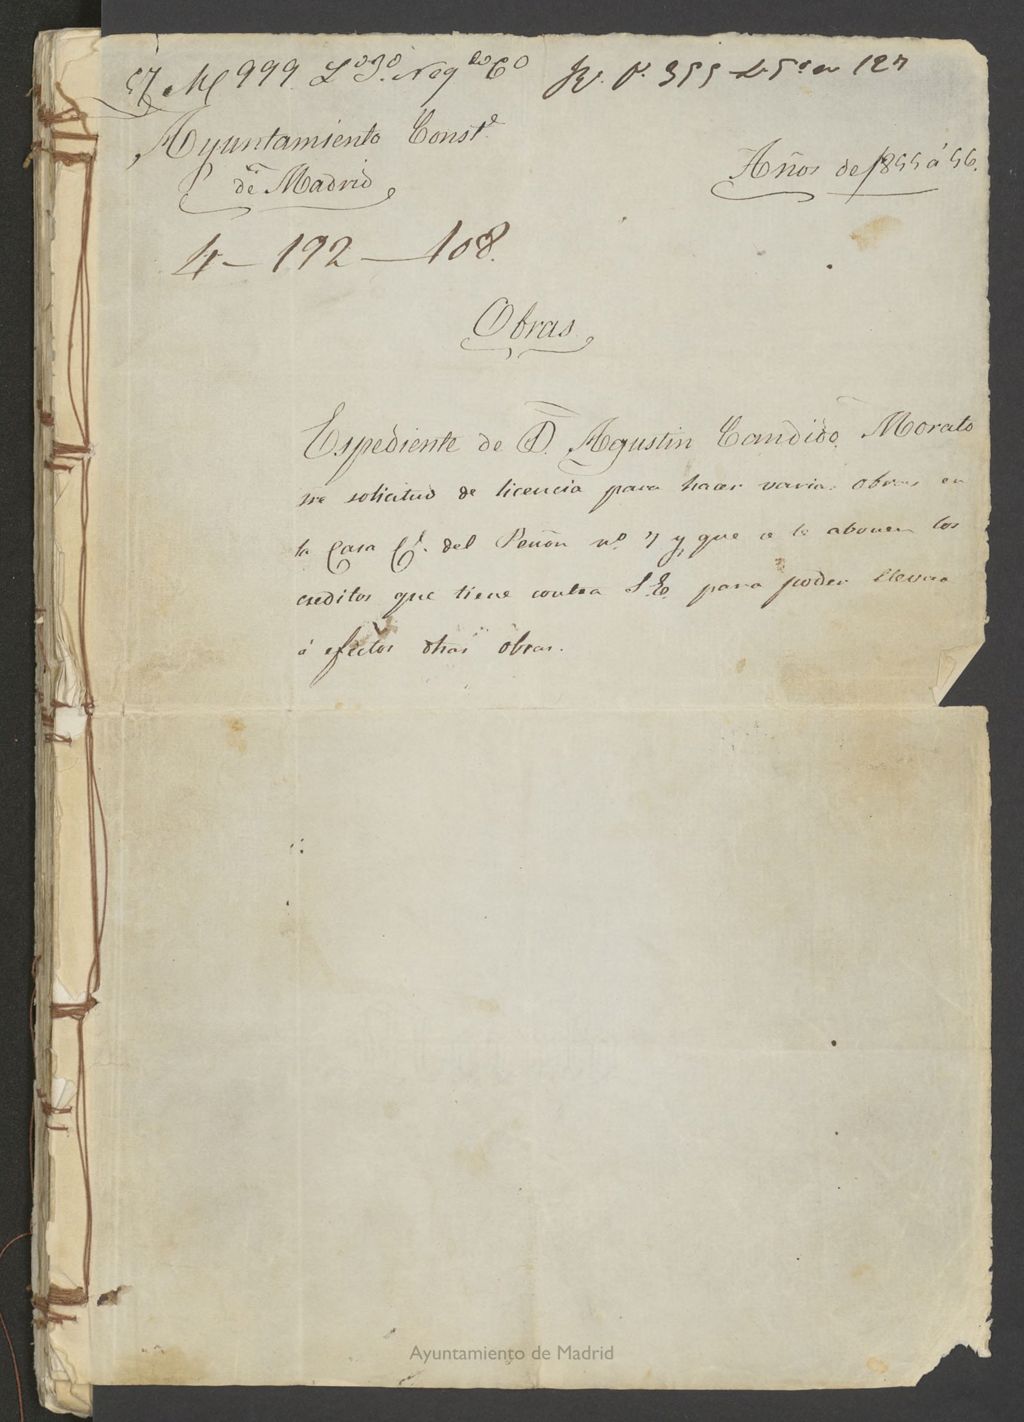 999
Ayuntamiento Const.l
de Madrid
Años de 1855 á 56.
4 - 192 - 108.
Obras
Espediente de D. Agustin Candido Morato
sre solicitud de licencia para hacer varias obras en
la Casa C.e del Peñon n.o 7 y que se le abonen los
creditos que tiene contra S.E. para poder llevar
á efectos dhas obras.
Ayuntamiento de Madrid